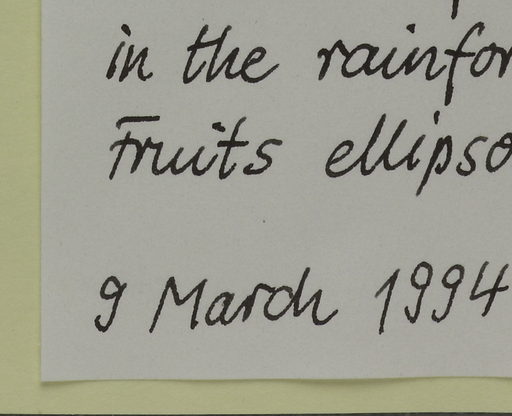 in the rainfor
Fruits ellipso
9 March 1994